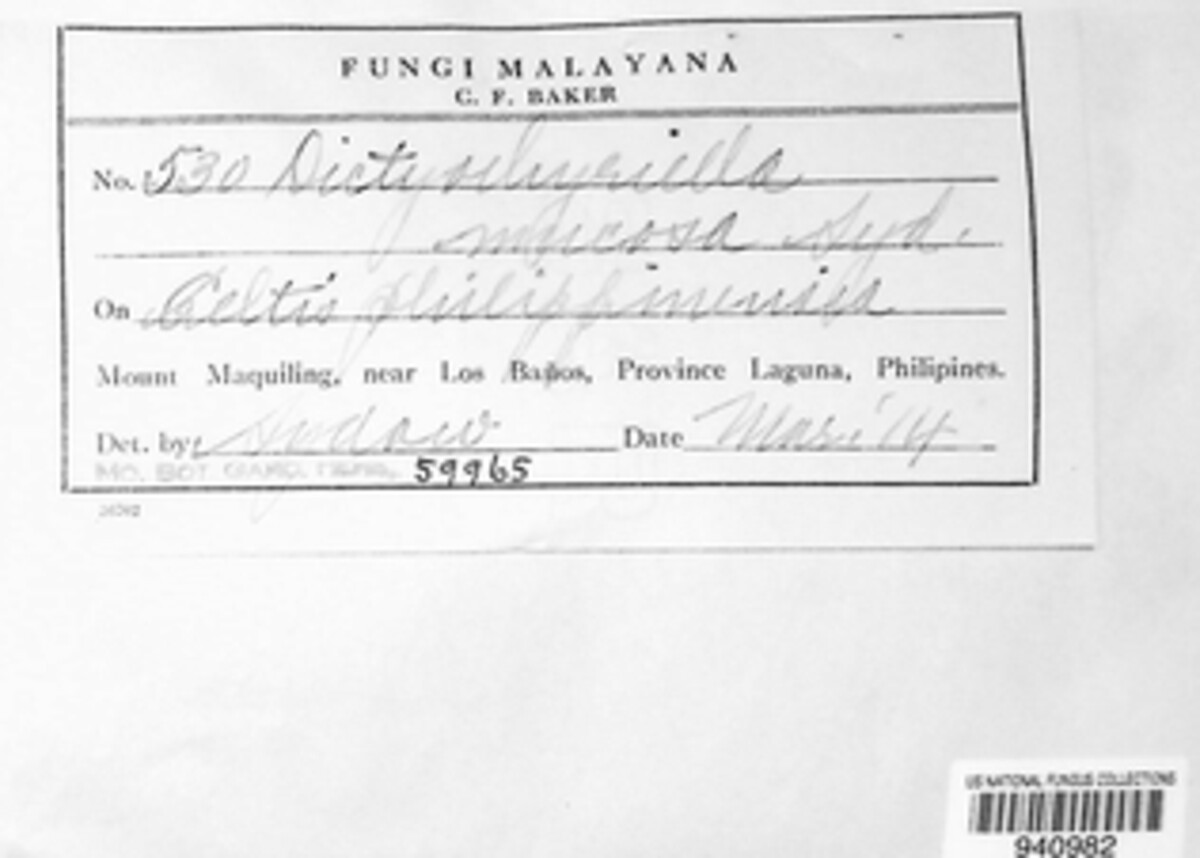 FUNGI MALAYANA
C. F. BAKER
No. 530 Dictyothyriella
mucosa Syd.
On Celtis philippinensis
Mount Maquiling, near Los Baños, Province Laguna, Philipines.
Det. by: Sydow Date Mar. '14
MO. BOT. GARD. HERB. 59965
US NATIONAL FUNGUS COLLECTIONS
940982